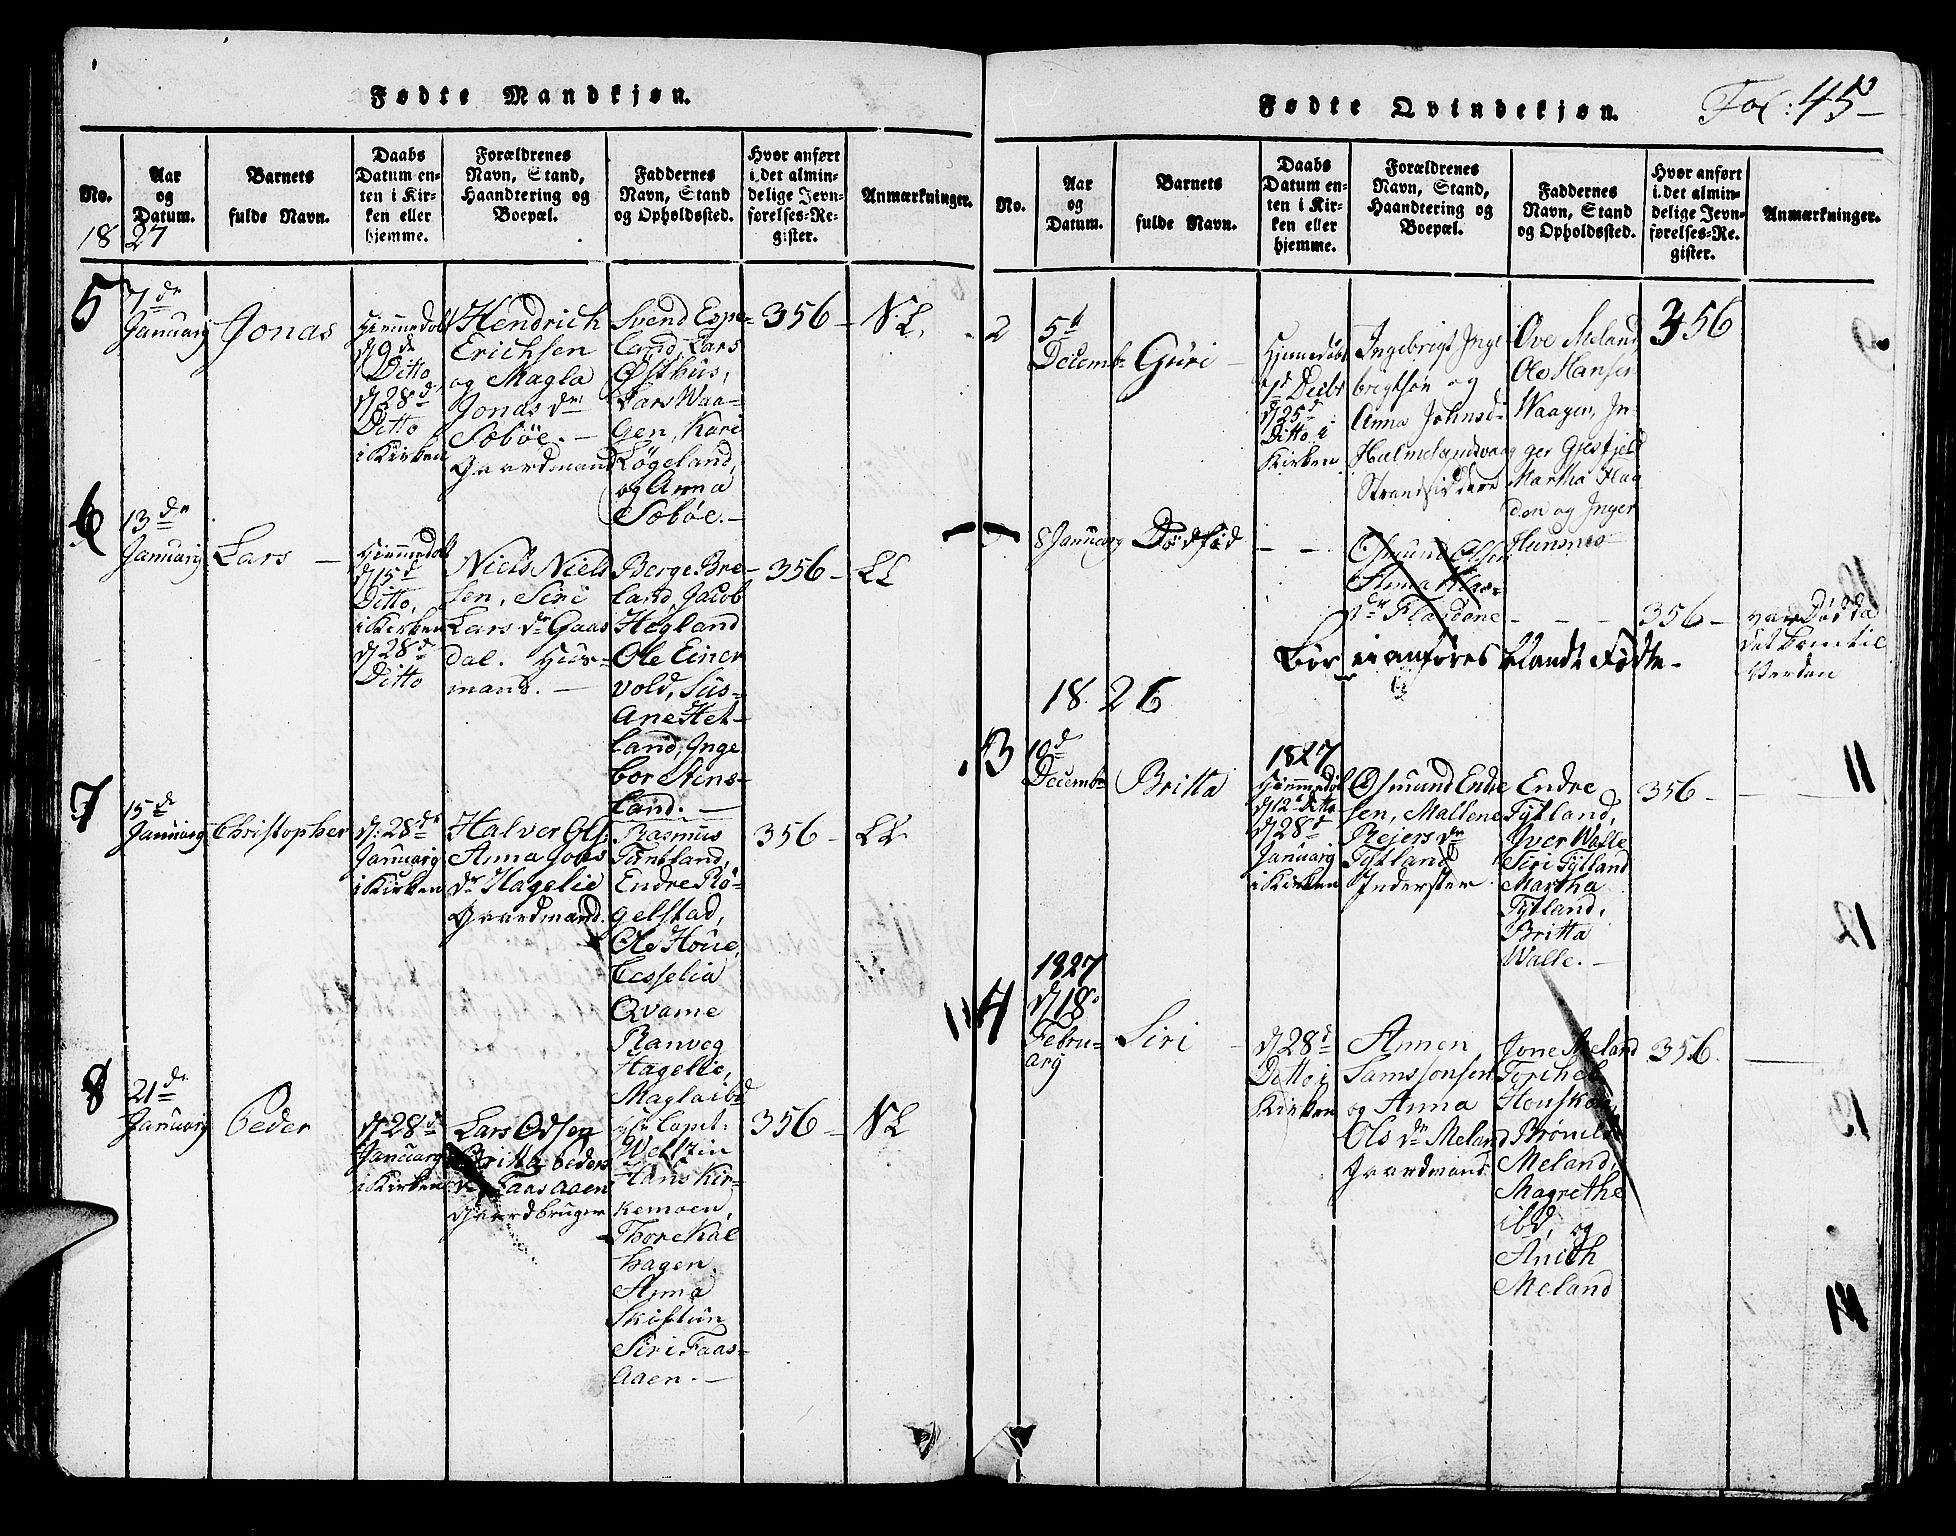 Fødte Mandkjøn.
No.
Aar
og
Datum.
Barnets
fulde Navn.
Daabs
Datum en-
ten i Kir-
ken eller
hjemme.
Forældrenes
Navn, Stand,
Haandtering og
Boepæl.
Faddernes
Navn, Stand
og Opholdssted.
Hvor anført
i det almin-
delige Jevn-
førelses-Re-
gister.
Anmærkninger.
1827
5
7de
Januarij
Jonas
Hiemmedøbt
d 9de
Ditto
d 28de
Ditto
i Kirken
Hendrich
Erichsen
og Magla
Jonas dr
Søbøe. -
Gaardmand
Svend Espe-
land, Lars
Østhus,
Lars Waa-
gen, Kari
Løgeland,
og Anna
Søbøe. -
356 -
N.L.
6
13de
Januarij
Lars -
Hiemmedøbt
d 15de
Ditto,
i Kirken
d 28de
Ditto
Niels Niel-
sen, Siri
Lars dr Gaas
dal. Huus-
mand. -
Berge Bre-
land, Jacob
Hegland
Ole Einer
vold, Sus-
Ane Het-
land, Inge
bor Stens-
land. -
356 -
LL
7
15de
Januarij
Christopher
d: 28de
Januarij
i Kirken
Halver Ols:
Anna Jobs
dr Hagelie
Gaardmand.
Rasmus
Tuntland,
Endre Rø-
gelstad,
Ole Houe,
Cesselia
Qvame
Ranveg
Hagelie,
Magla ibd
356 -
LL
8
21de
Januarij
Peder
d 28de
Januarij
i Kirken
Lars Odsen
Britta Peders
dr Faas Aaen
Gaardbruger
Capit:
Weltzin
Hans Kir-
kemoen,
Thore Kal
hagen.
Anna
Skiftun
Siri Faas-
Aaen. -
356 -
NL
Fødte Qvindekjøn.
Fol: 45
No.
Aar
og
Datum.
Barnets
fulde Navn.
Daabs
Datum en-
ten i Kir-
ken eller
hjemme.
Forældrenes
Navn, Stand,
Haandtering og
Boepæl.
Faddernes
Navn, Stand
og Opholdssted.
Hvor anført
i det almin-
delige Jevn-
førelses-Re-
gister.
Anmærkninger.
2
5d
Decemb
Guri -
Hjemmedøbt
7d Decbr
d 25d
Ditto i
Kirken
Ingebrigt Inge
brigtsøn og
Anna Johnsd-
Halmelandsvaag
Strandsiddere
Ove Meland
Ole Hansen
Waagen, In-
ger Gjesfjeld
Martha Haa
den og Inger
Hunsnes
356
8 Januarij
Dødfød
- -
Osmund Olsen
356 -
var Død da
det kom til
Verden
Bør ei anføres blandt Fødte -
1826
3
10d
Decemb
Britta
1827
Hiemmedøbt
d 12d Ditto
d 28d
Januarij
i Kirken
Osmund Endre
sen, Mallene
Reiers dr
Tytland
Inderster
Endre
Tytland,
Iver Walle
Siri Tytland
Martha
Tytland,
Britta
Walle. -
356 -
11
1827
4
d 18d
Febru-
arij
Siri
d 28d
Ditto i
Kirken
Annen
Samssonsen
og Anna
Ols dr Meland
Gaardmand
Jone Meland
Torchel
Meland,
Magrethe
ibd, og
Anith
Meland
356.
12